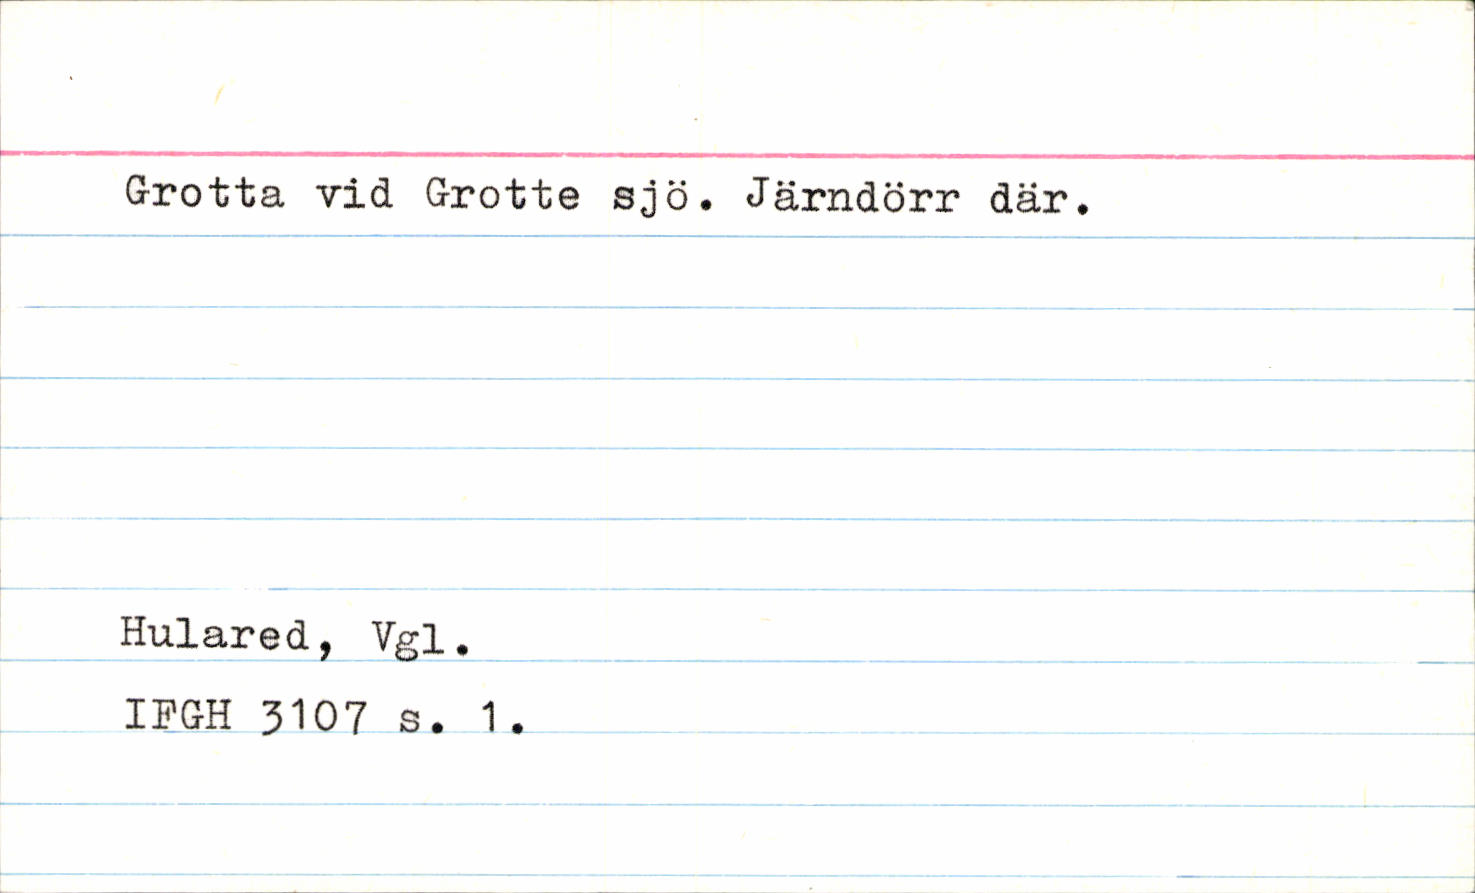 Grotta vid Grotte sjö. Järndörr där.
Hulared, Vgl.
IFGH 3107 s. 1.